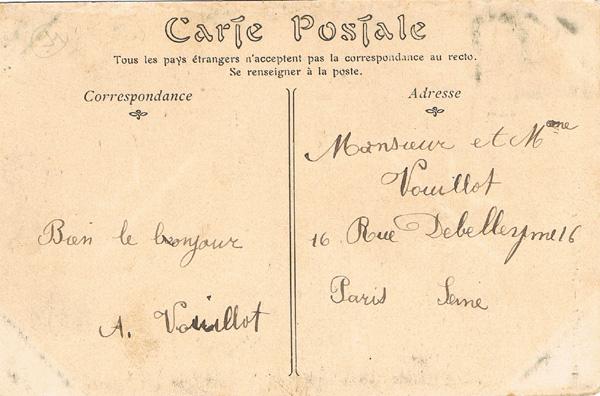 Carte Postale
Tous les pays étrangers n'acceptent pas la correspondance au recto.
Se renseigner à la poste.
Correspondance
Bien le bonjour
A. Vouillot
Adresse
Monsieur et Mme
Vouillot
16 Rue Debelleyme 16
Paris Seine